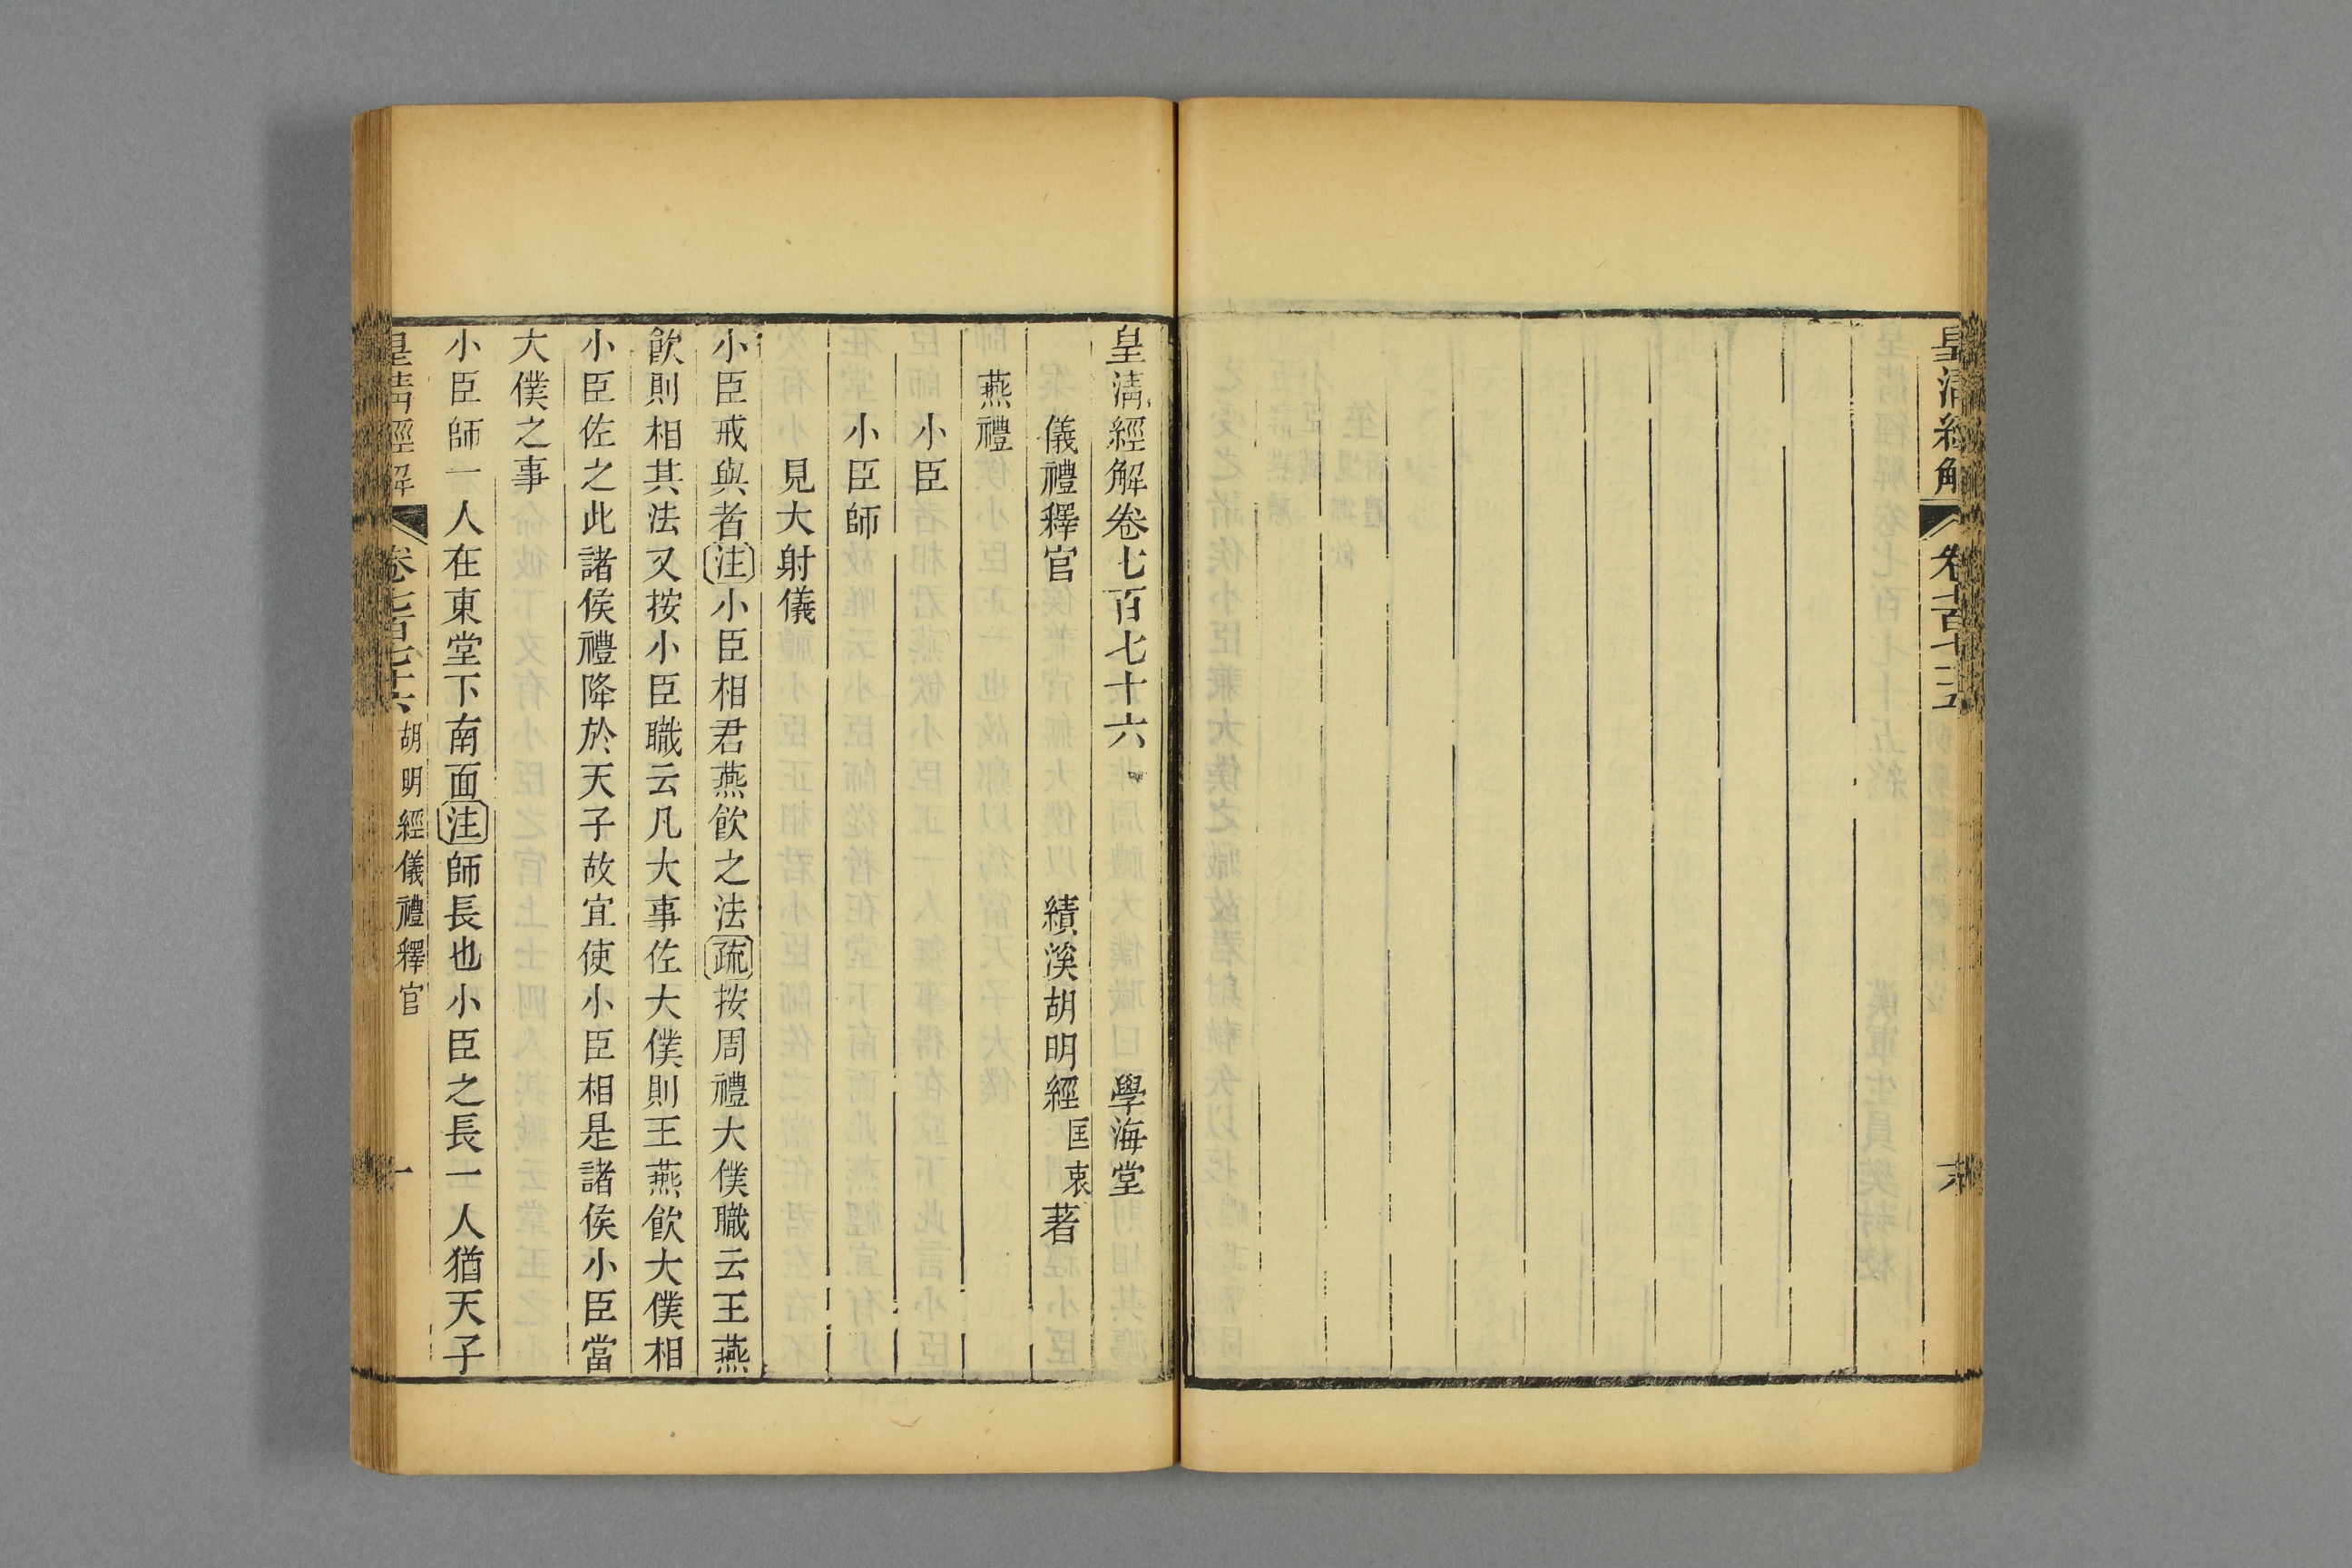 皇清經解
卷七百七十五
末
皇清經解卷七百七十六 學海堂
儀禮釋官 績溪胡明經匡衷著
燕禮
小臣
小臣師
見大射儀
小臣戒與者注小臣相君燕飮之法疏按周禮大僕職云王燕
飮則相其法又按小臣職云凡大事佐大僕則王燕飮大僕相
小臣佐之此諸侯禮降於天子故宜使小臣相是諸侯小臣當
大僕之事
小臣師一人在東堂下南面注師長也小臣之長一人猶天子
皇清經解 卷七百七十六 胡明經儀禮釋官 一